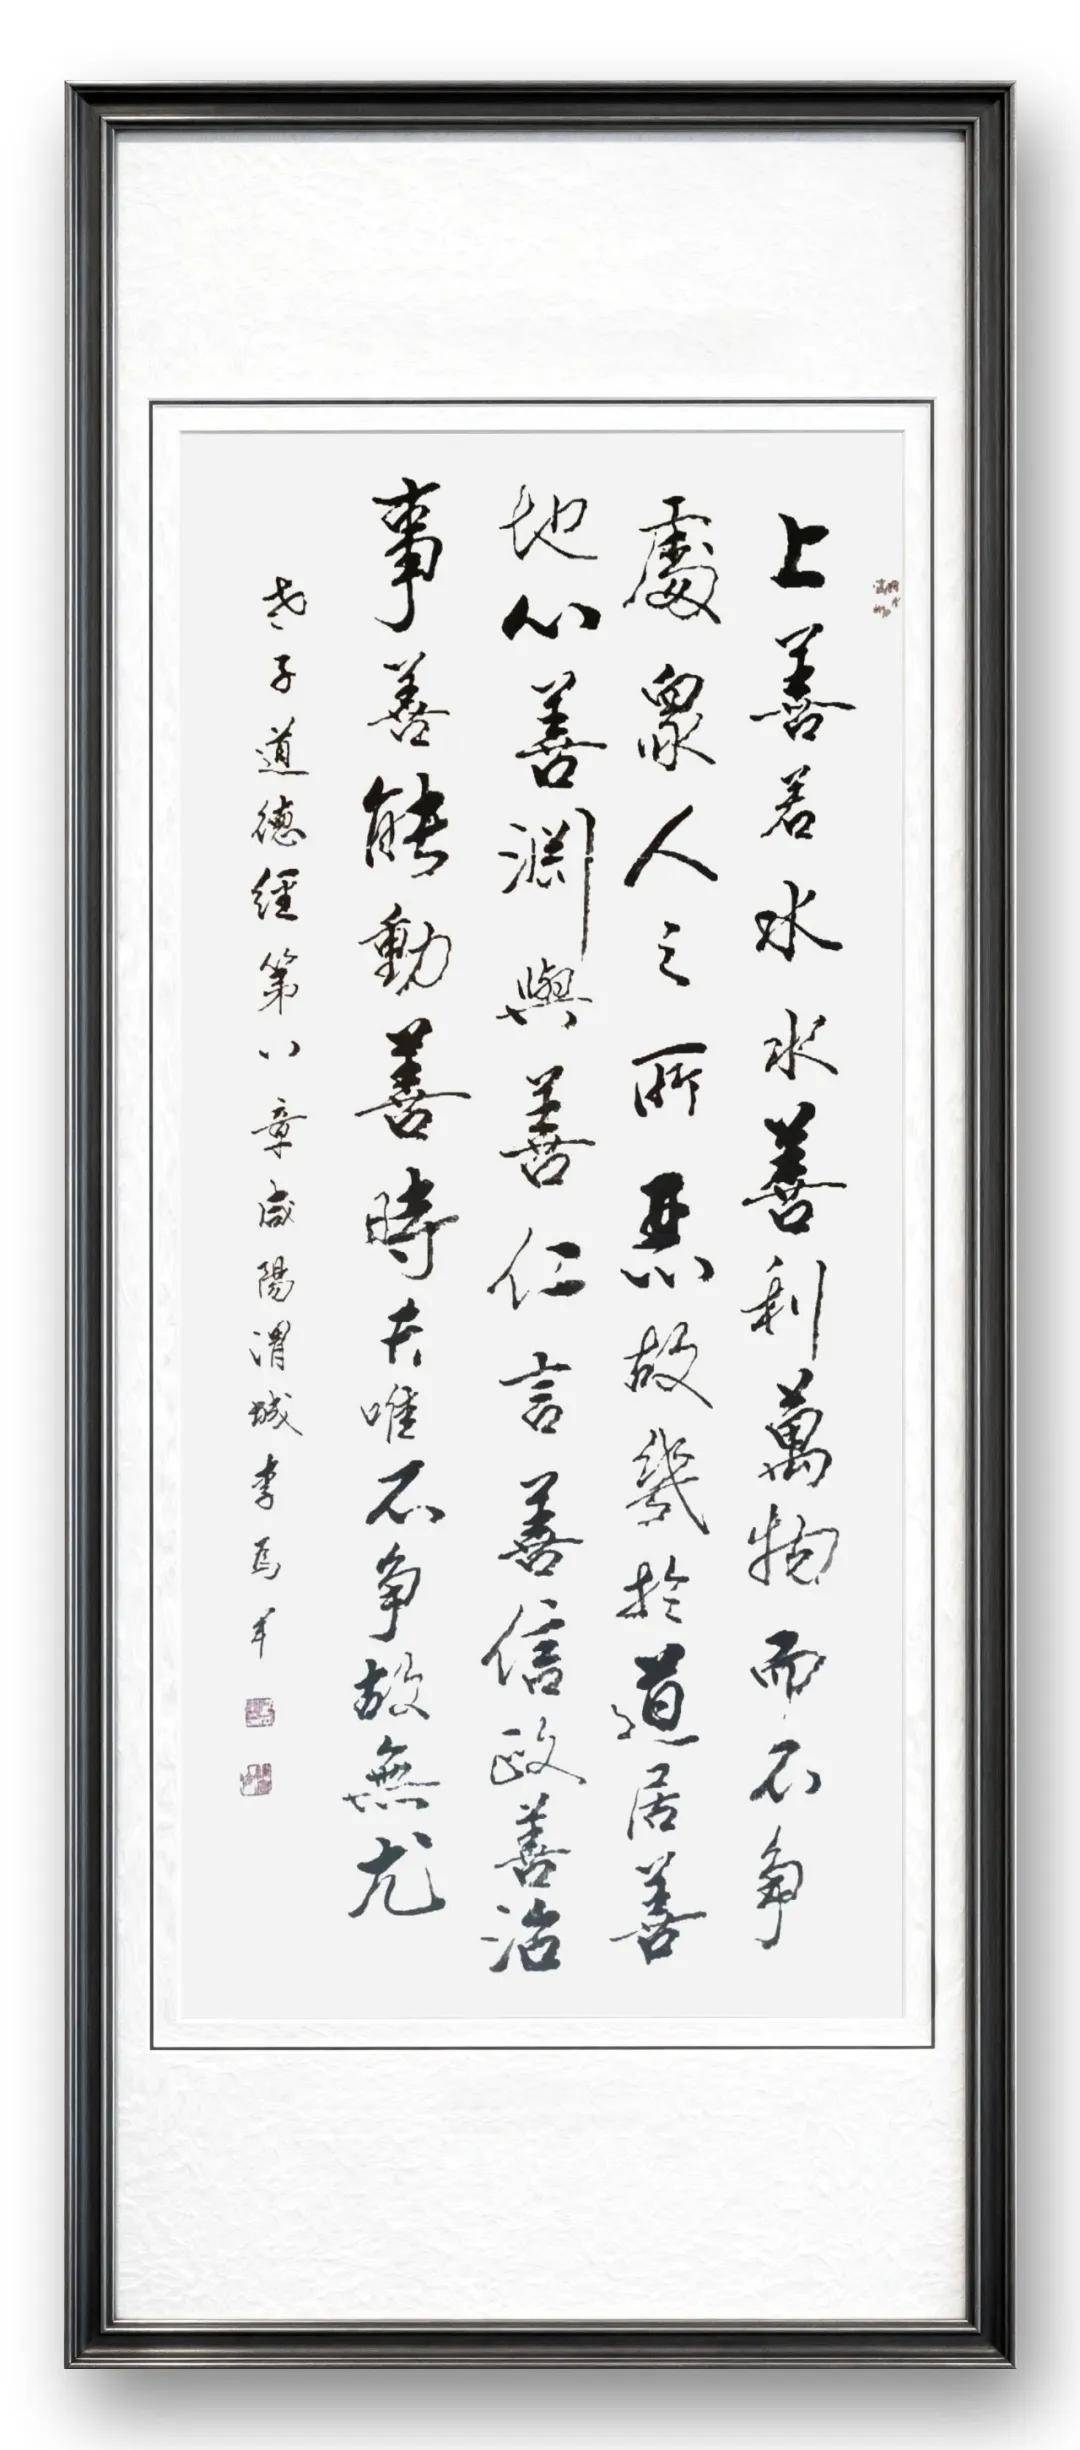 上善若水水善利萬物而不争
處衆人之所惡故幾於道居善
地心善淵與善仁言善信政善治
事善能動善時夫唯不争故無尤
老子道德經第八章咸陽渭城李馬年